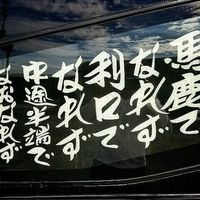 馬鹿で
なれず
利口で
なれず
中途半端で
なれず